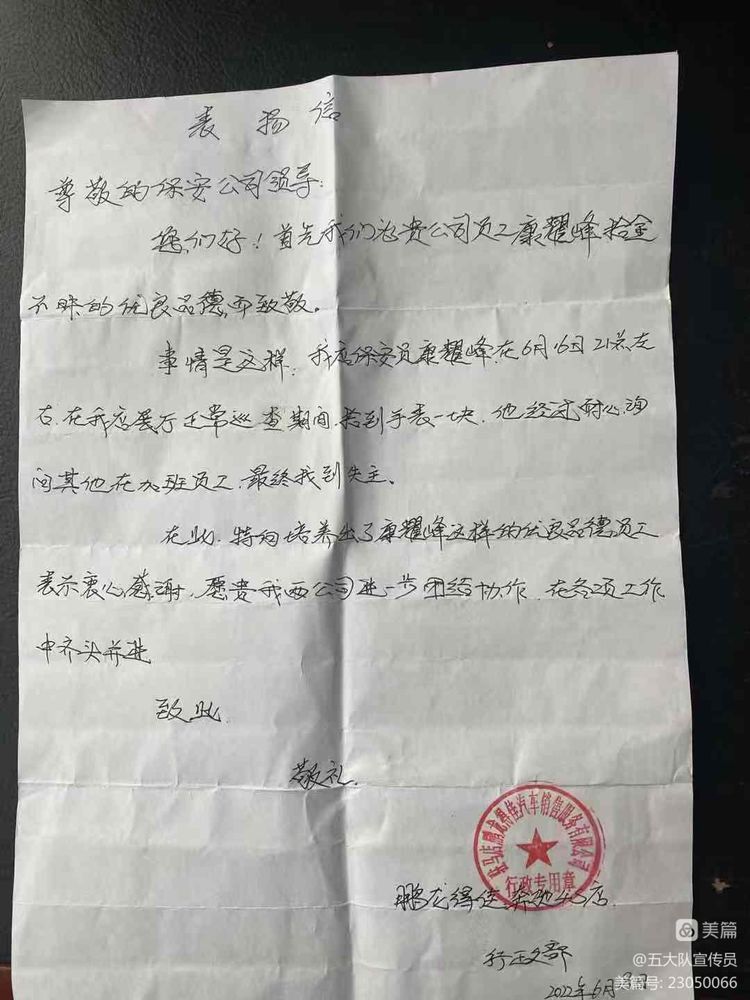 表扬信
尊敬的保安公司领导:
您们好!首先我们为贵公司员工康耀峰拾金
不昧的优良品德,而致敬。
事情是这样,我店保安员康耀峰,在6月16日21点左
右,在我店展厅正常巡查期间,拾到手表一块,他经过耐心询
问其他在加班员工,最终找到失主。
在此,特向培养出了康耀峰这样的优良品德员工
表示衷心感谢,愿贵我两公司进一步团结协作,在各项工作
中齐头并进
致此
敬礼.
驻马店鹏龙得佳汽车销售服务有限公司
行政专用章
鹏龙得佳奔驰4S店.
行政部
2022年6月
美篇
@五大队宣传员
美篇号: 23050066